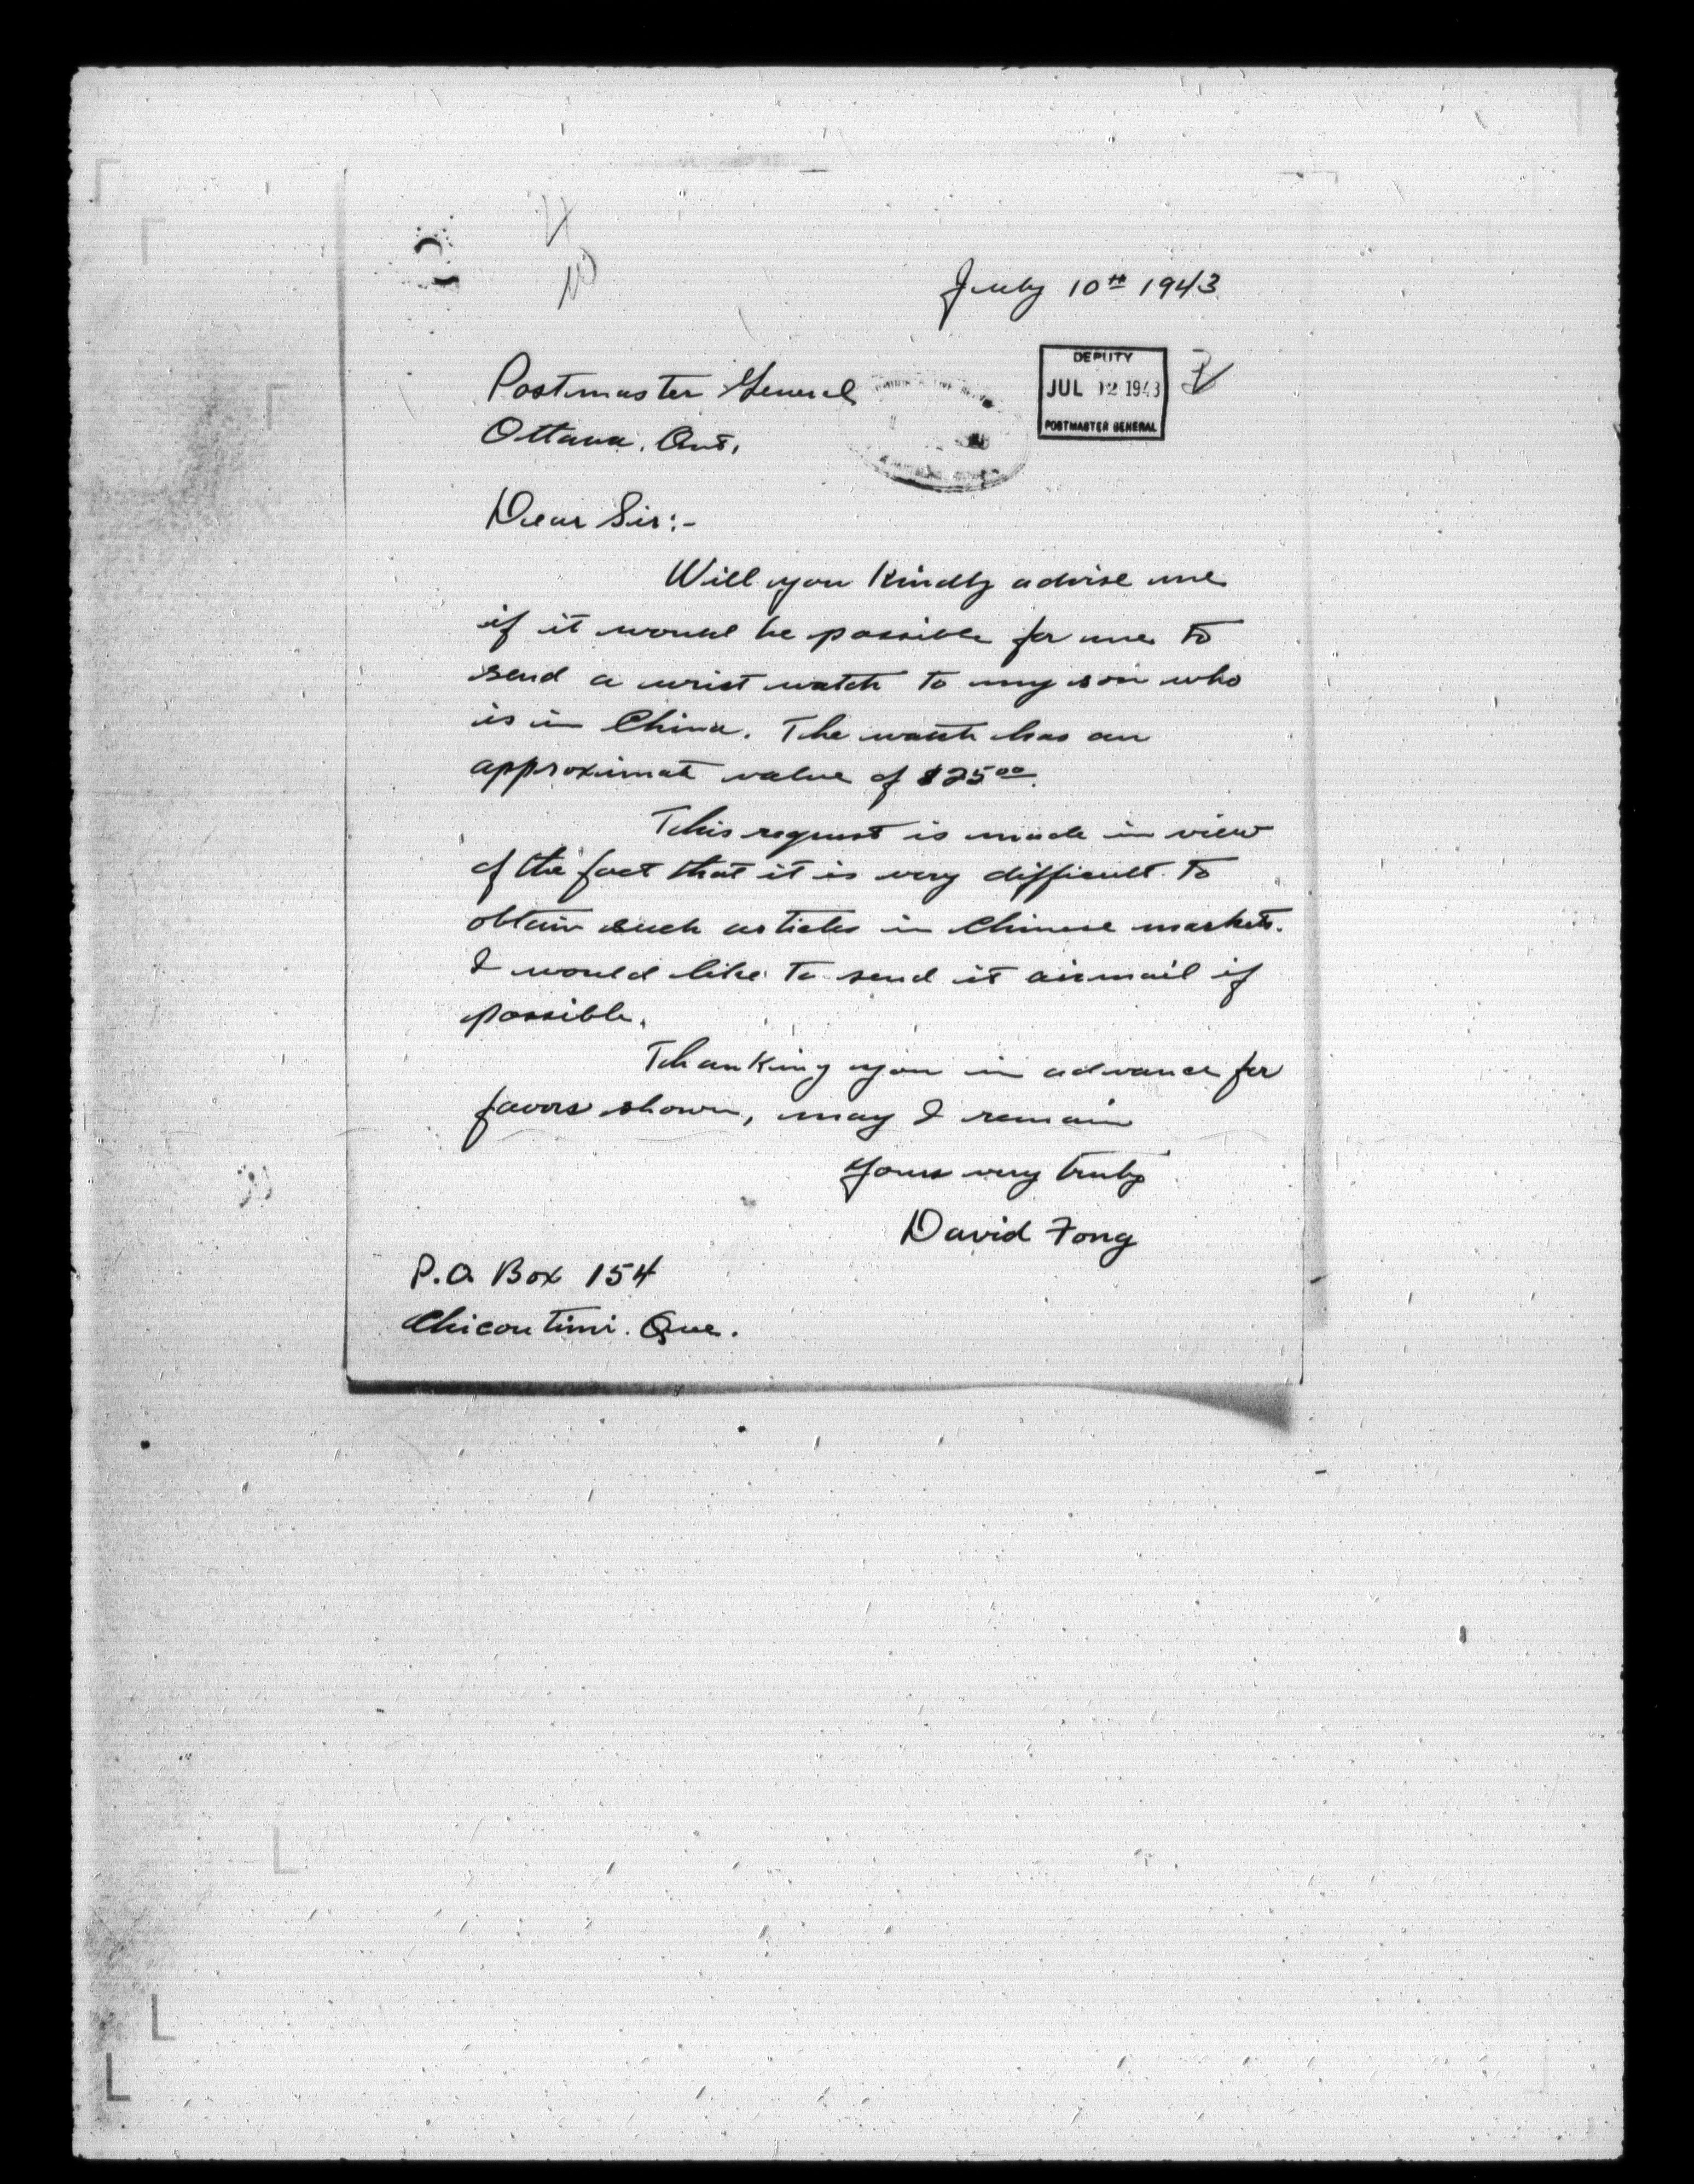 July 10th 1943
DEPUTY
JUL 12 1943
POSTMASTER GENERAL
Postmaster General
Ottawa. Ont.
Dear Sir:-
Will you kindly advise me
if it would be possible for me to
send a wrist watch to my son who
is in China. The watch has an
approximate value of $25.00.
This request is made in view
of the fact that it is very difficult to
obtain such articles in Chinese markets.
I would like to send it airmail if
possible.
Thanking you in advance for
favors shown, may I remain
Yours very truly
David Fong
P.O. Box 154
Chicoutimi. Que.